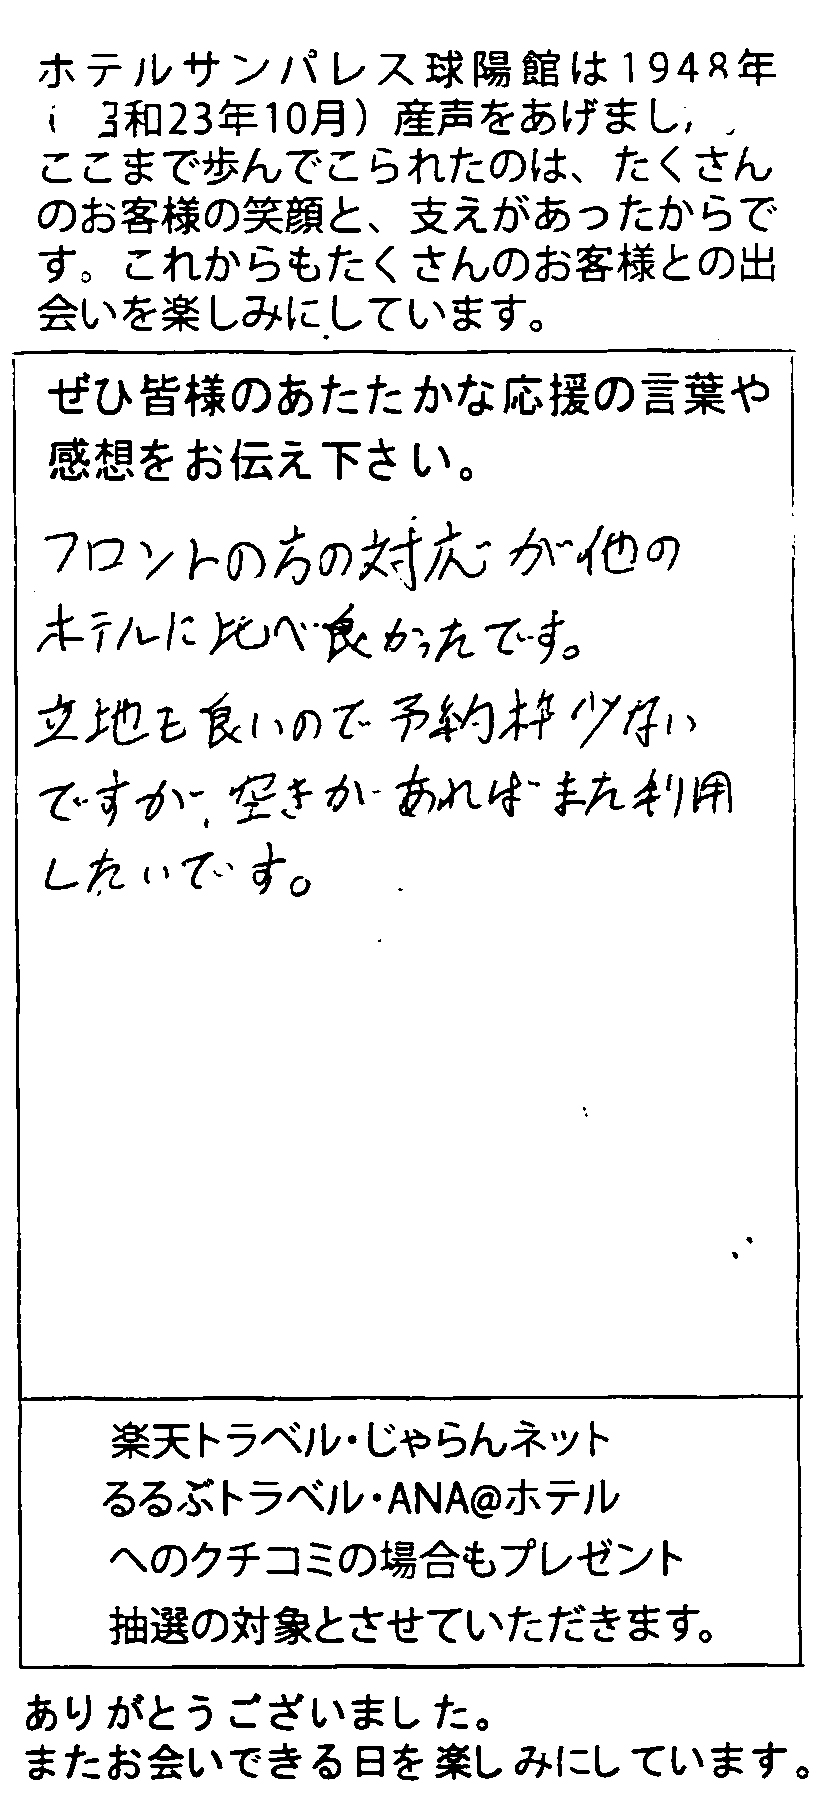 ホテルサンパレス球陽館は1948年
和23年10月）産声をあげまし
ここまで歩んでこられたのは、たくさん
のお客様の笑顔と、支えがあったからで
す。これからもたくさんのお客様との出
会いを楽しみにしています。
ぜひ皆様のあたたかな応援の言葉や
感想をお伝え下さい。
フロントの方の対応が他の
ホテルに比べ良かったです。
立地も良いので予約枠少ない
ですが、空きがあればまた利用
したいです。
楽天トラベル・じゃらんネット
るるぶトラベル・ANA@ホテル
へのクチコミの場合もプレゼント
抽選の対象とさせていただきます。
ありがとうございました。
またお会いできる日を楽しみにしています。